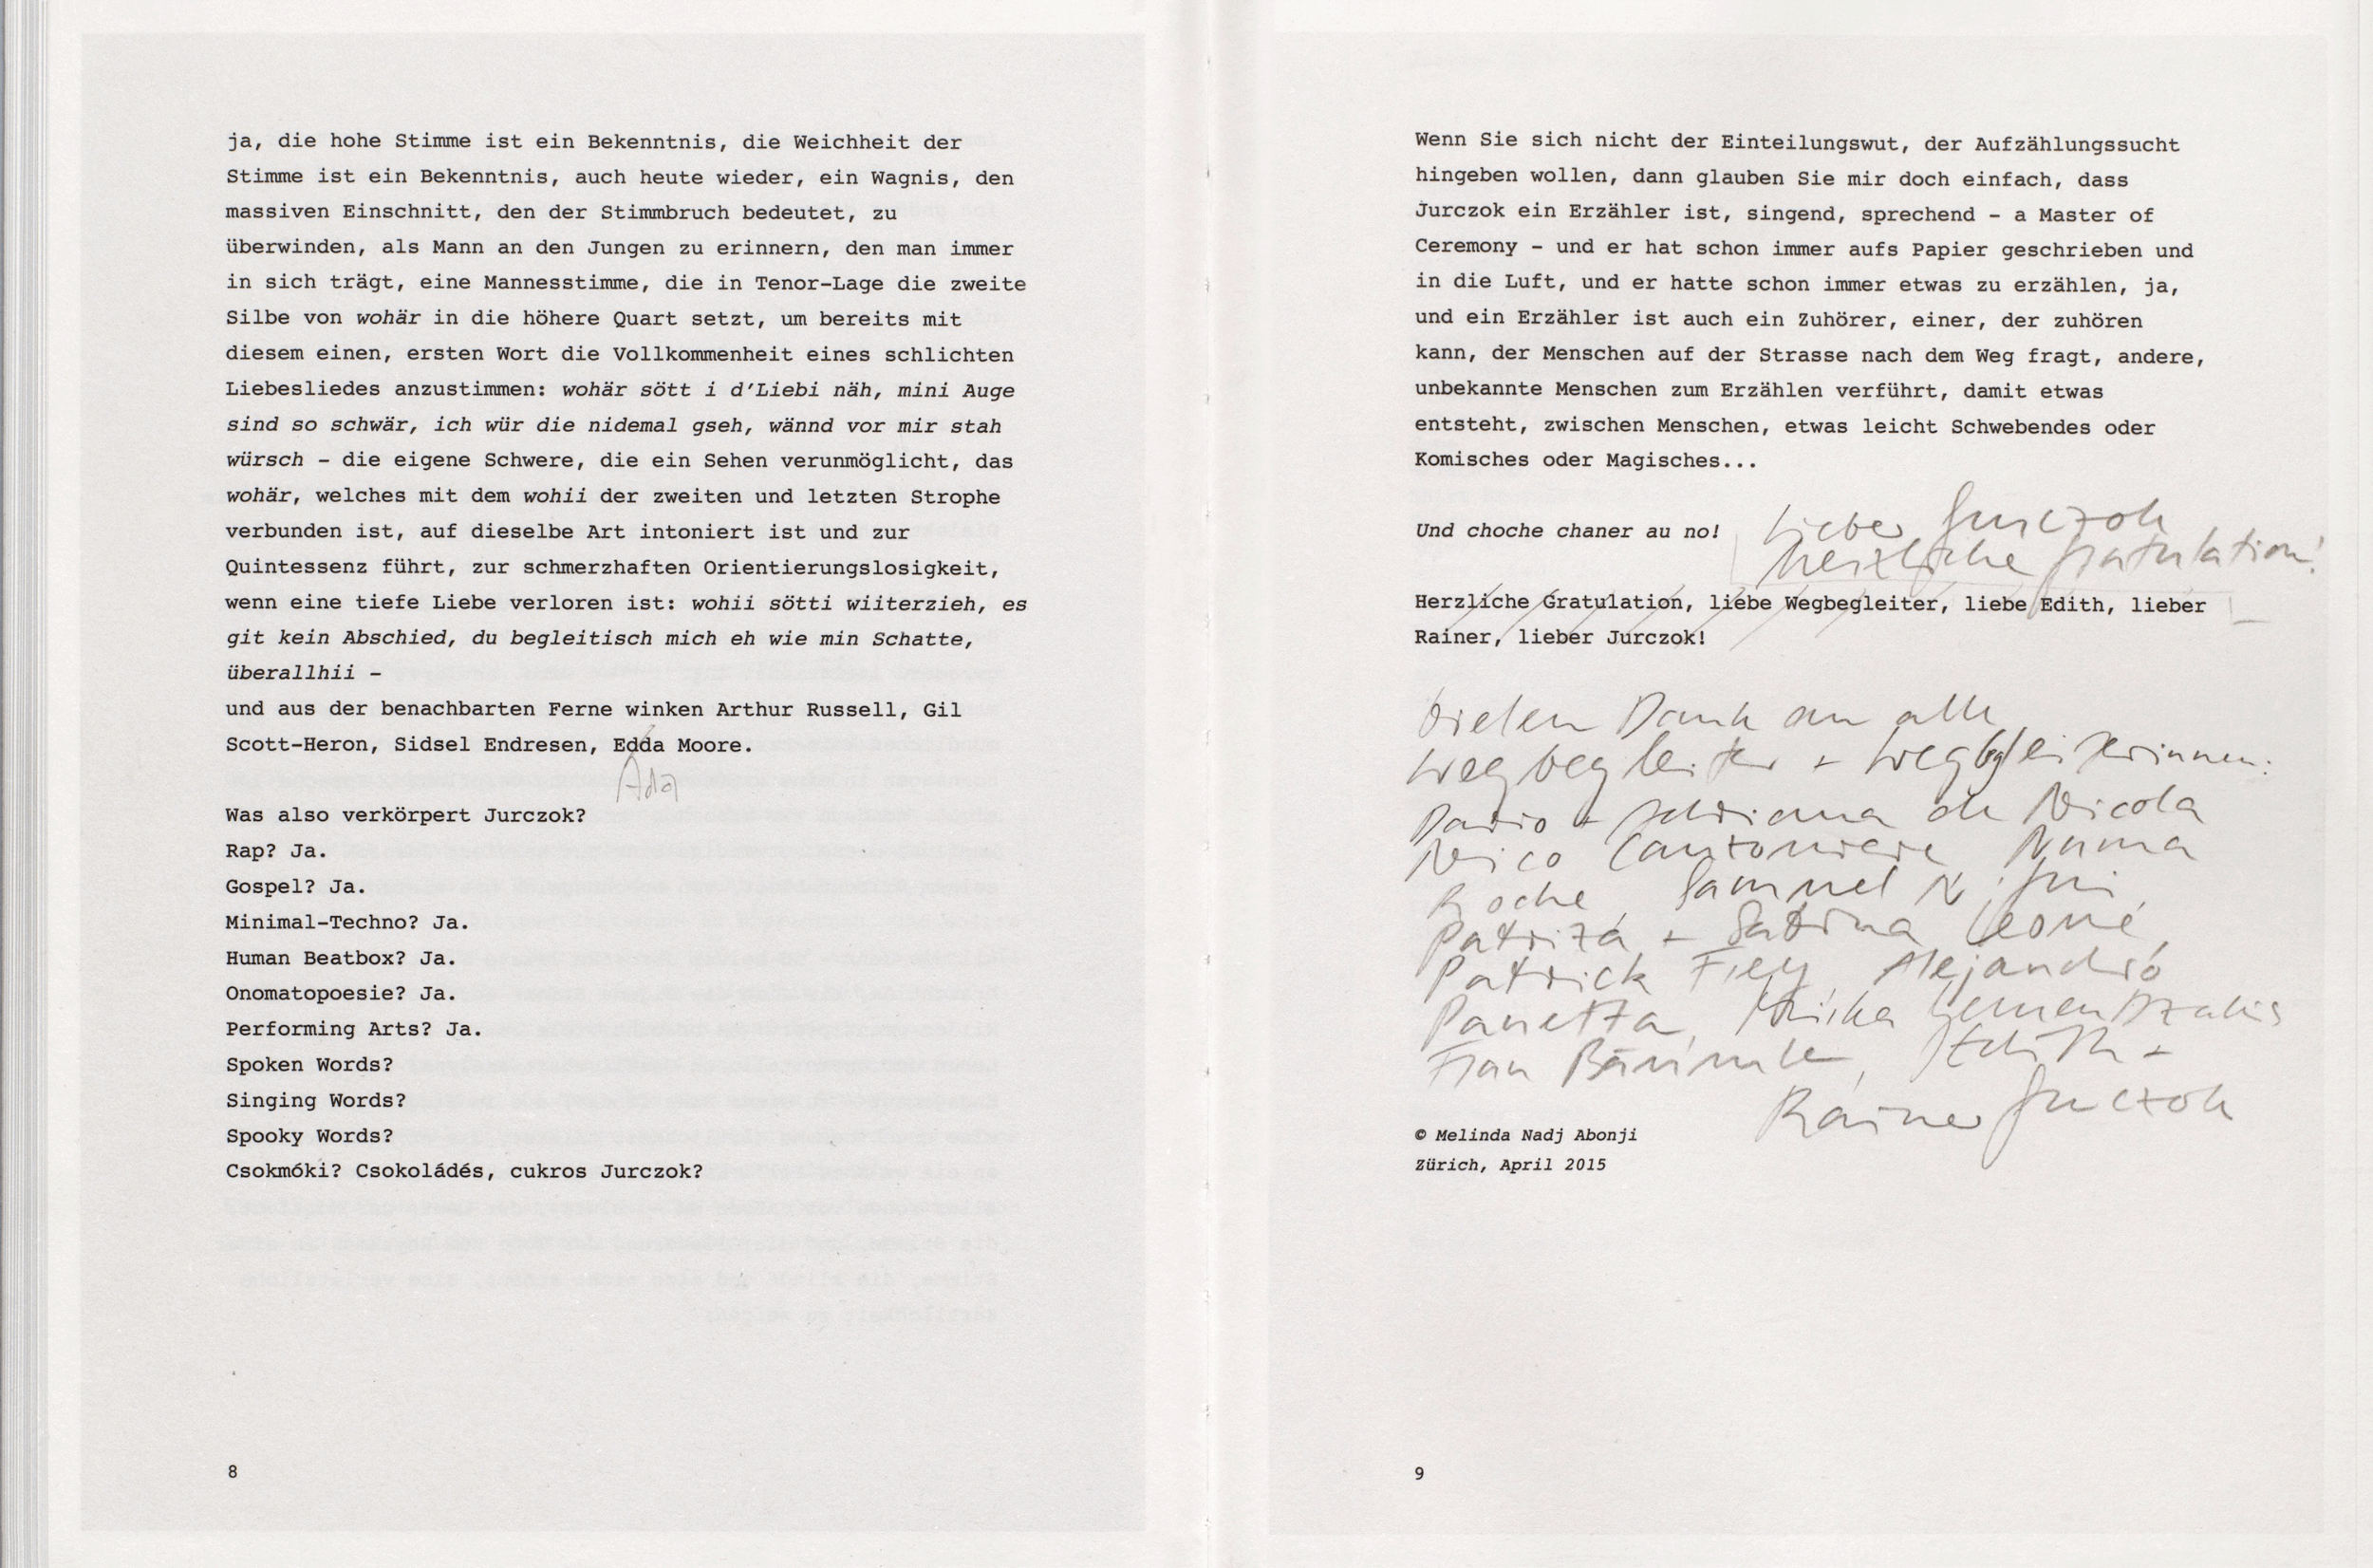 ja, die hohe Stimme ist ein Bekenntnis, die Weichheit der
Stimme ist ein Bekenntnis, auch heute wieder, ein Wagnis, den
massiven Einschnitt, den der Stimmbruch bedeutet, zu
überwinden, als Mann an den Jungen zu erinnern, den man immer
in sich trägt, eine Mannesstimme, die in Tenor-Lage die zweite
Silbe von wohär in die höhere Quart setzt, um bereits mit
diesem einen, ersten Wort die Vollkommenheit eines schlichten
Liebesliedes anzustimmen: wohär sött i d'Liebi näh, mini Auge
sind so schwär, ich wür die nidemal gseh, wännd vor mir stah
würsch – die eigene Schwere, die ein Sehen verunmöglicht, das
wohär, welches mit dem wohii der zweiten und letzten Strophe
verbunden ist, auf dieselbe Art intoniert ist und zur
Quintessenz führt, zur schmerzhaften Orientierungslosigkeit,
wenn eine tiefe Liebe verloren ist: wohii sötti wiiterzieh, es
git kein Abschied, du begleitisch mich eh wie min Schatte,
überallhii –
und aus der benachbarten Ferne winken Arthur Russell, Gil
Scott-Heron, Sidsel Endresen, Edda Moore.
Ada
Was also verkörpert Jurczok?
Rap? Ja.
Gospel? Ja.
Minimal-Techno? Ja.
Human Beatbox? Ja.
Onomatopoesie? Ja.
Performing Arts? Ja.
Spoken Words?
Singing Words?
Spooky Words?
Csokmóki? Csokoládés, cukros Jurczok?
8
Wenn Sie sich nicht der Einteilungswut, der Aufzählungssucht
hingeben wollen, dann glauben Sie mir doch einfach, dass
Jurczok ein Erzähler ist, singend, sprechend – a Master of
Ceremony – und er hat schon immer aufs Papier geschrieben und
in die Luft, und er hatte schon immer etwas zu erzählen, ja,
und ein Erzähler ist auch ein Zuhörer, einer, der zuhören
kann, der Menschen auf der Strasse nach dem Weg fragt, andere,
unbekannte Menschen zum Erzählen verführt, damit etwas
entsteht, zwischen Menschen, etwas leicht Schwebendes oder
Komisches oder Magisches...
Und choche chaner au no!
Lieber Jurczok
herzliche Gratulation!
Herzliche Gratulation, liebe Wegbegleiter, liebe Edith, lieber
Rainer, lieber Jurczok!
Vielen Dank an alle
Wegbegleiter + Wegbegleiterinnen:
Dario + Adriana de Nicola
Nico Numa
Roche Samuel
+ Sabrina Leone,
Patrick Frey, Alejandro
Panetta,
Frau Edith +
Rainer Jurczok
© Melinda Nadj Abonji
Zürich, April 2015
9